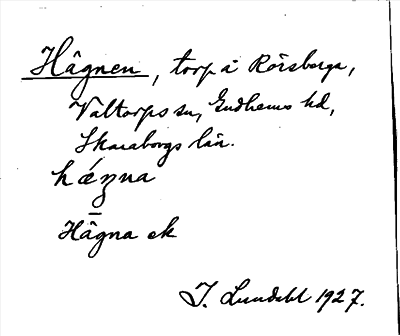 Hågnen, torp å Rörsberga,
Valtorps sn, Gudhems hd,
Skaraborgs län.
hágna
Hågna ek
J. Lundahl 1927.